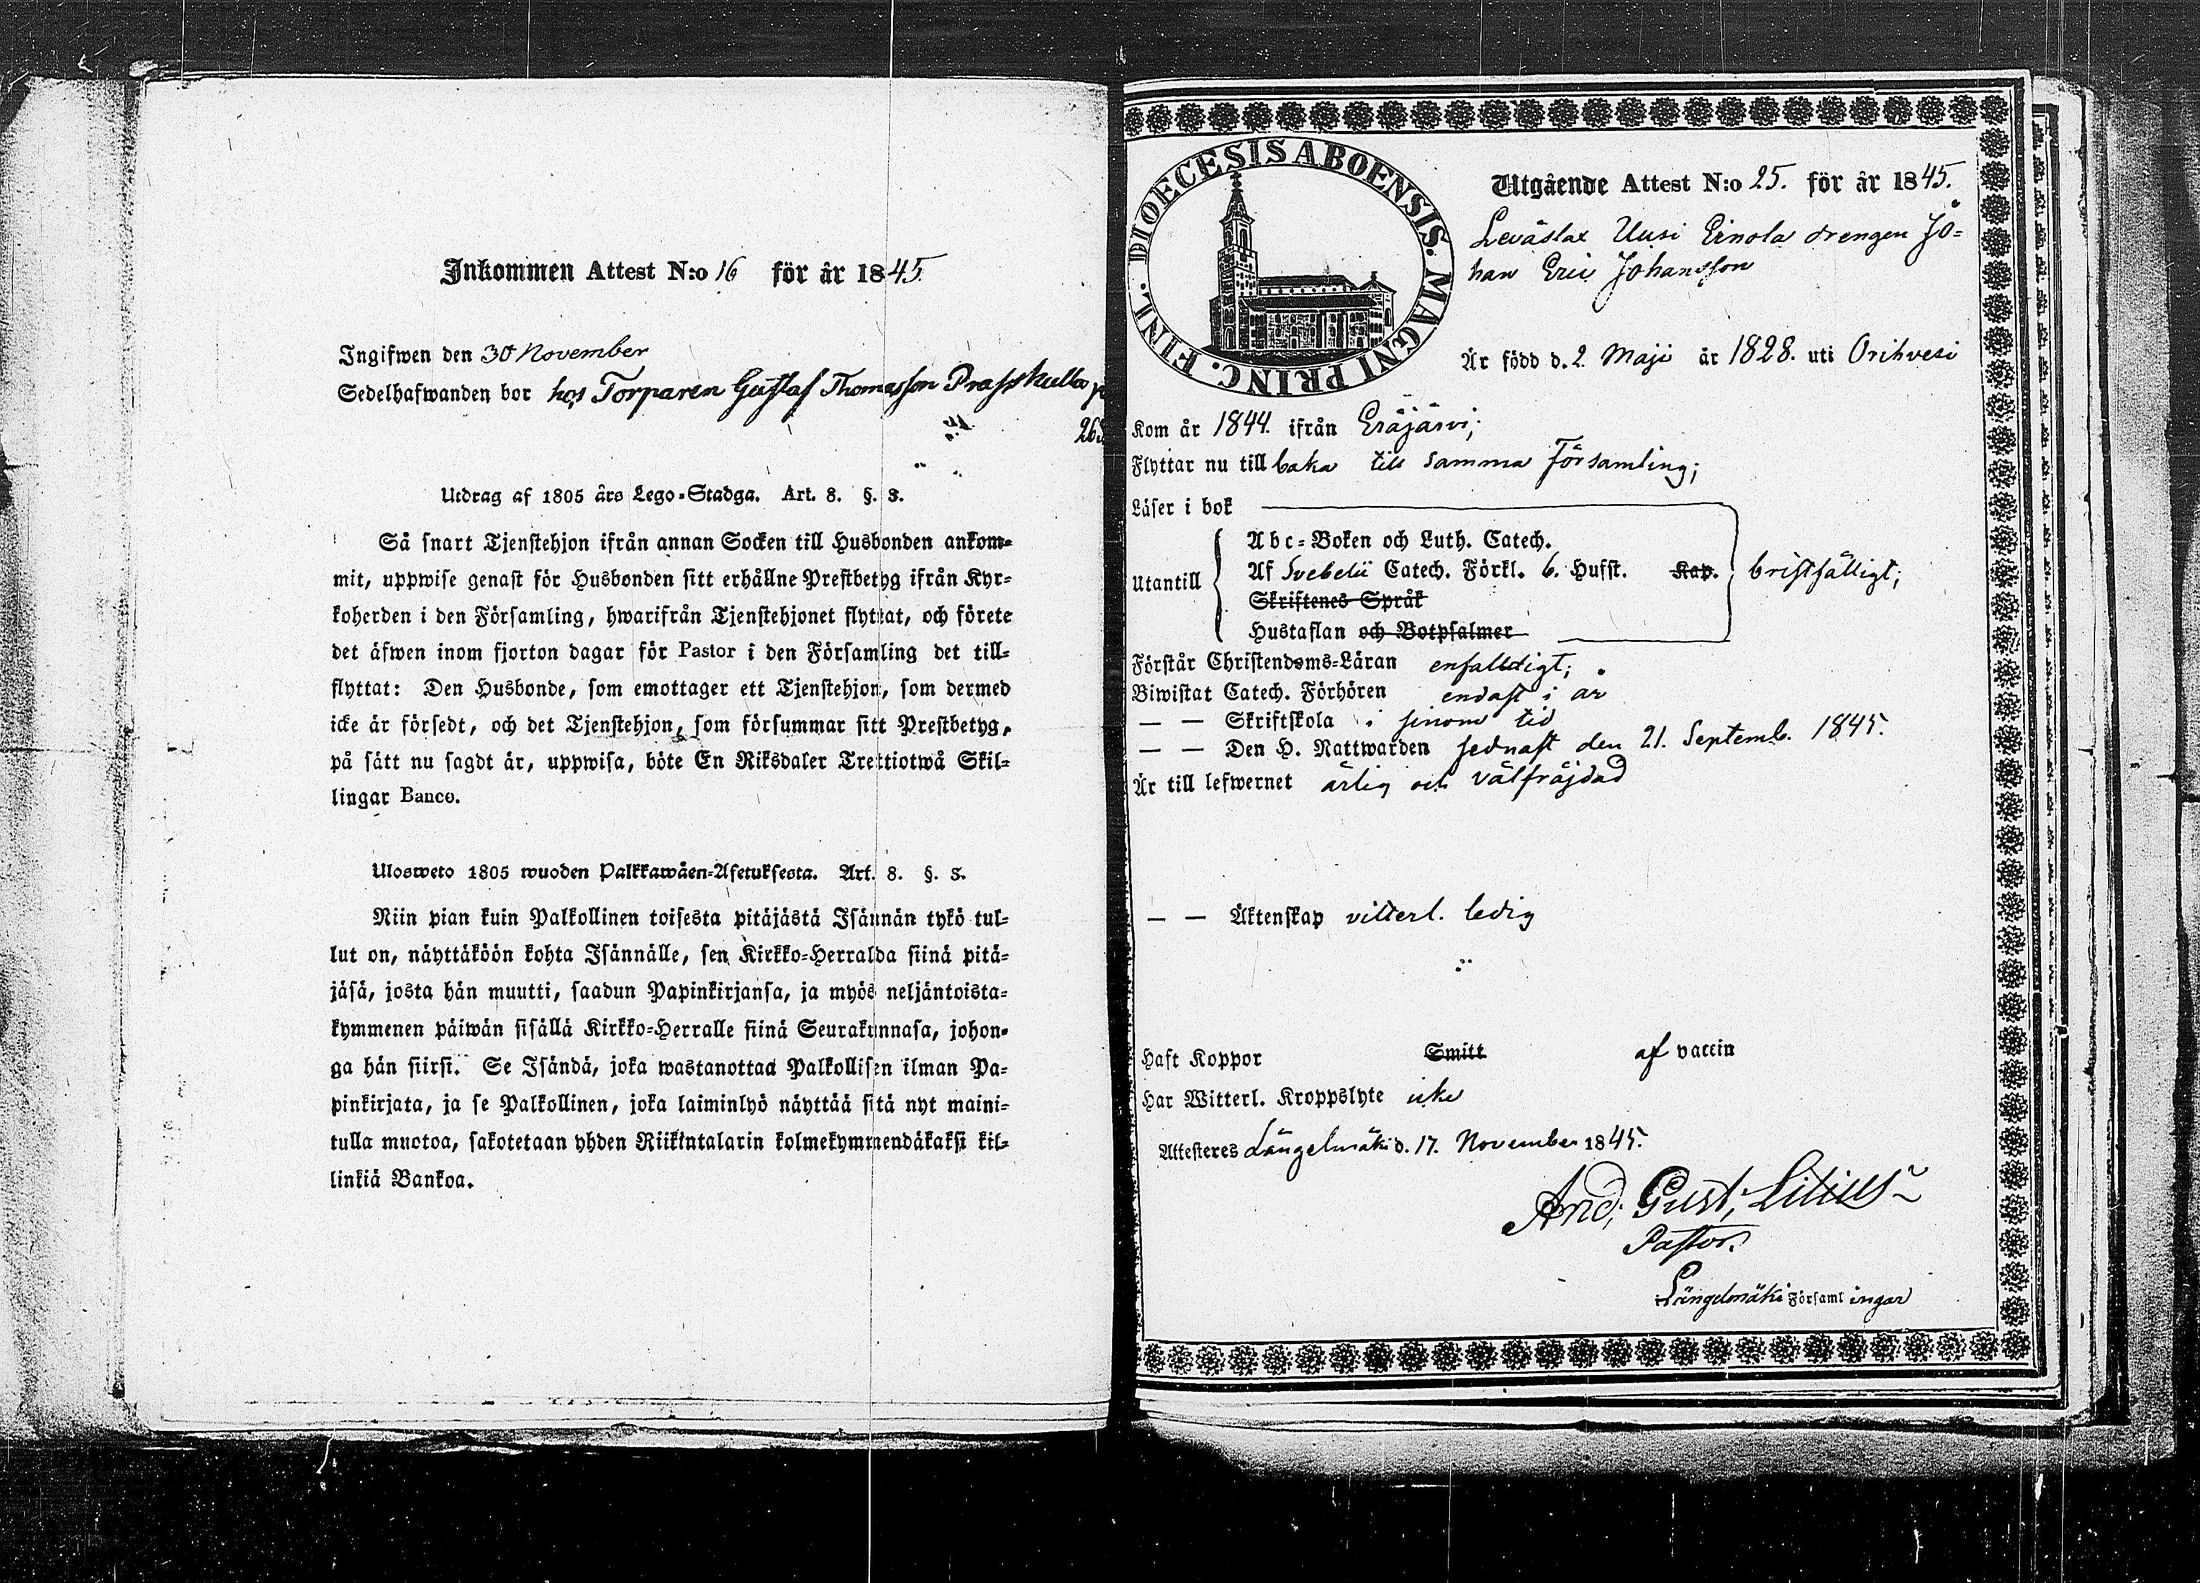 Inkommen Attest N:o 16 för år 1845.
Ingifwen den 30 November
Sedelhafwanden bor hos Torparen Gustaf Thomasson Prasskulla
268
Utdrag af 1805 års Lego-Stadga. Art. 8. §. 3.
Så snart Tjenstehjon ifrån annan Socken till Husbonden ankom-
mit, uppwise genast för Husbonden sitt erhållne Prestbetyg ifrån Kyr-
koherden i den Församling, hwarifrån Tjenstehjonet flyttat, och förete
det äfwen inom fjorton dagar för Pastor i den Församling det till-
flyttat: Den Husbonde, som emottager ett Tjenstehjon, som dermed
icke är försedt, och det Tjenstehjon, som försummar sitt Prestbetyg,
på sätt nu sagdt är, uppwisa, böte En Riksdaler Trettiotwå Skil-
lingar Banco.
Ulosweto 1805 wuoden Palkkawäen-Asetuksesta. Art. 8. §. 3.
Niin pian kuin Palkollinen toisesta pitäjästä Isännän tykö tul-
lut on, näyttäköön kohta Isännälle, sen Kirkko-Herralda siinä pitä-
jäsä, josta hän muutti, saadun Papinkirjansa, ja myös neljäntoista-
kymmenen päiwän sisällä Kirkko-Herralle siinä Seurakunnasa, johon-
ga hän siirsi. Se Isändä, joka wastanottaa Palkollisen ilman Pa-
pinkirjata, ja se Palkollinen, joka laiminlyö näyttää sitä nyt maini-
tulla muotoa, sakotetaan yhden Riikintalarin kolmekymmendäkaksi kil-
linkiä Bankoa.
DIOECESIS ABOENSIS. MAGNI PRINC. FINL.
Utgående Attest N:o 25. för år 1845.
Leväslax Uusi Einola drengen Jo-
han Eric Johansson
Är född d. 2 Maji år 1828. uti Orihvesi
Kom år 1844. ifrån Eräjärvi;
Flyttar nu till baka till samma Församling;
Läser i bok
Utantill
Abc-Boken och Luth. Catech.
Af Svebelii Catech. Förkl. 6. Hufst. Kap. bristfälligt;
Skriftenes Språk
Hustaflan och Botpsalmer
Förstår Christendoms-Läran enfalldigt;
Biwistat Catech. Förhören endast i år
— — Skriftskola i sinom tid
— — Den H. Nattwarden sednast den 21. Septemb. 1845.
Är till lefwernet ärlig och välfräjdad
— — Äktenskap vitterl. ledig
Haft Koppor Smitt af vaccin
Har Witterl. Kroppslyte icke
Attesteres Längelmäki d. 17. November 1845.
And. Gust. Lilius
Pastor.
Längelmäki Församl ingar